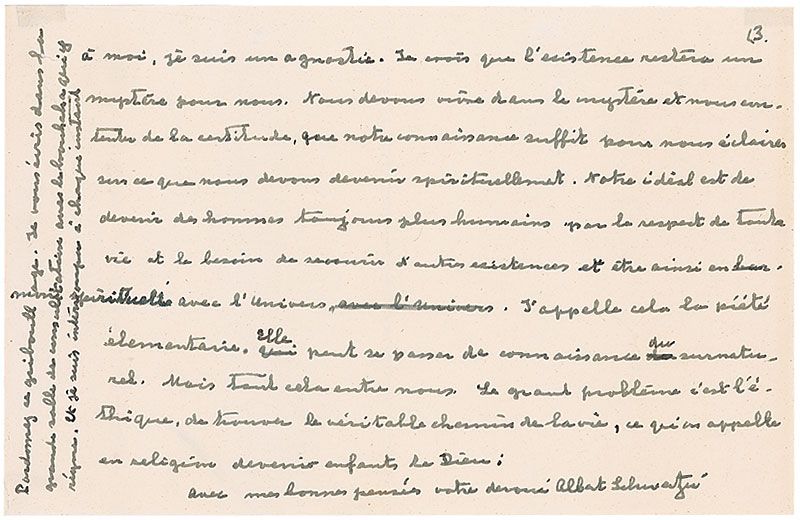 13.
à moi, je suis un agnostic. Je crois que l'existence restera un
mystère pour nous. Nous devons vivre dans le mystère et nous con-
tenter de la certitude, que notre connaissance suffit pour nous éclairer
sur ce que nous devons devenir spirituellemet. Notre idéal est de
devenir des hommes toujours plus humains par le respect de toute
vie et le besoin de secourir d'autres existences et être ainsi en har-
monie spirituelle avec l'Univers, avec l'Univers. J'appelle cela la piété
élementaire. Elle peut se passer de connaissance du surnatu-
rel. Mais tout cela entre nous. Le grand problème c'est l'é-
thique, de trouver le véritable chemin de la vie, ce qu'on appelle
en religion devenir enfants de Dieu;
avec mes bonnes pensées votre devoué Albert Schweitzer
Pardonnez ce gribouillage. Je vous écris dans la
grande salle des consultations avec le brouhaha qui y
règne. Et je suis intérrompu à chaque instant